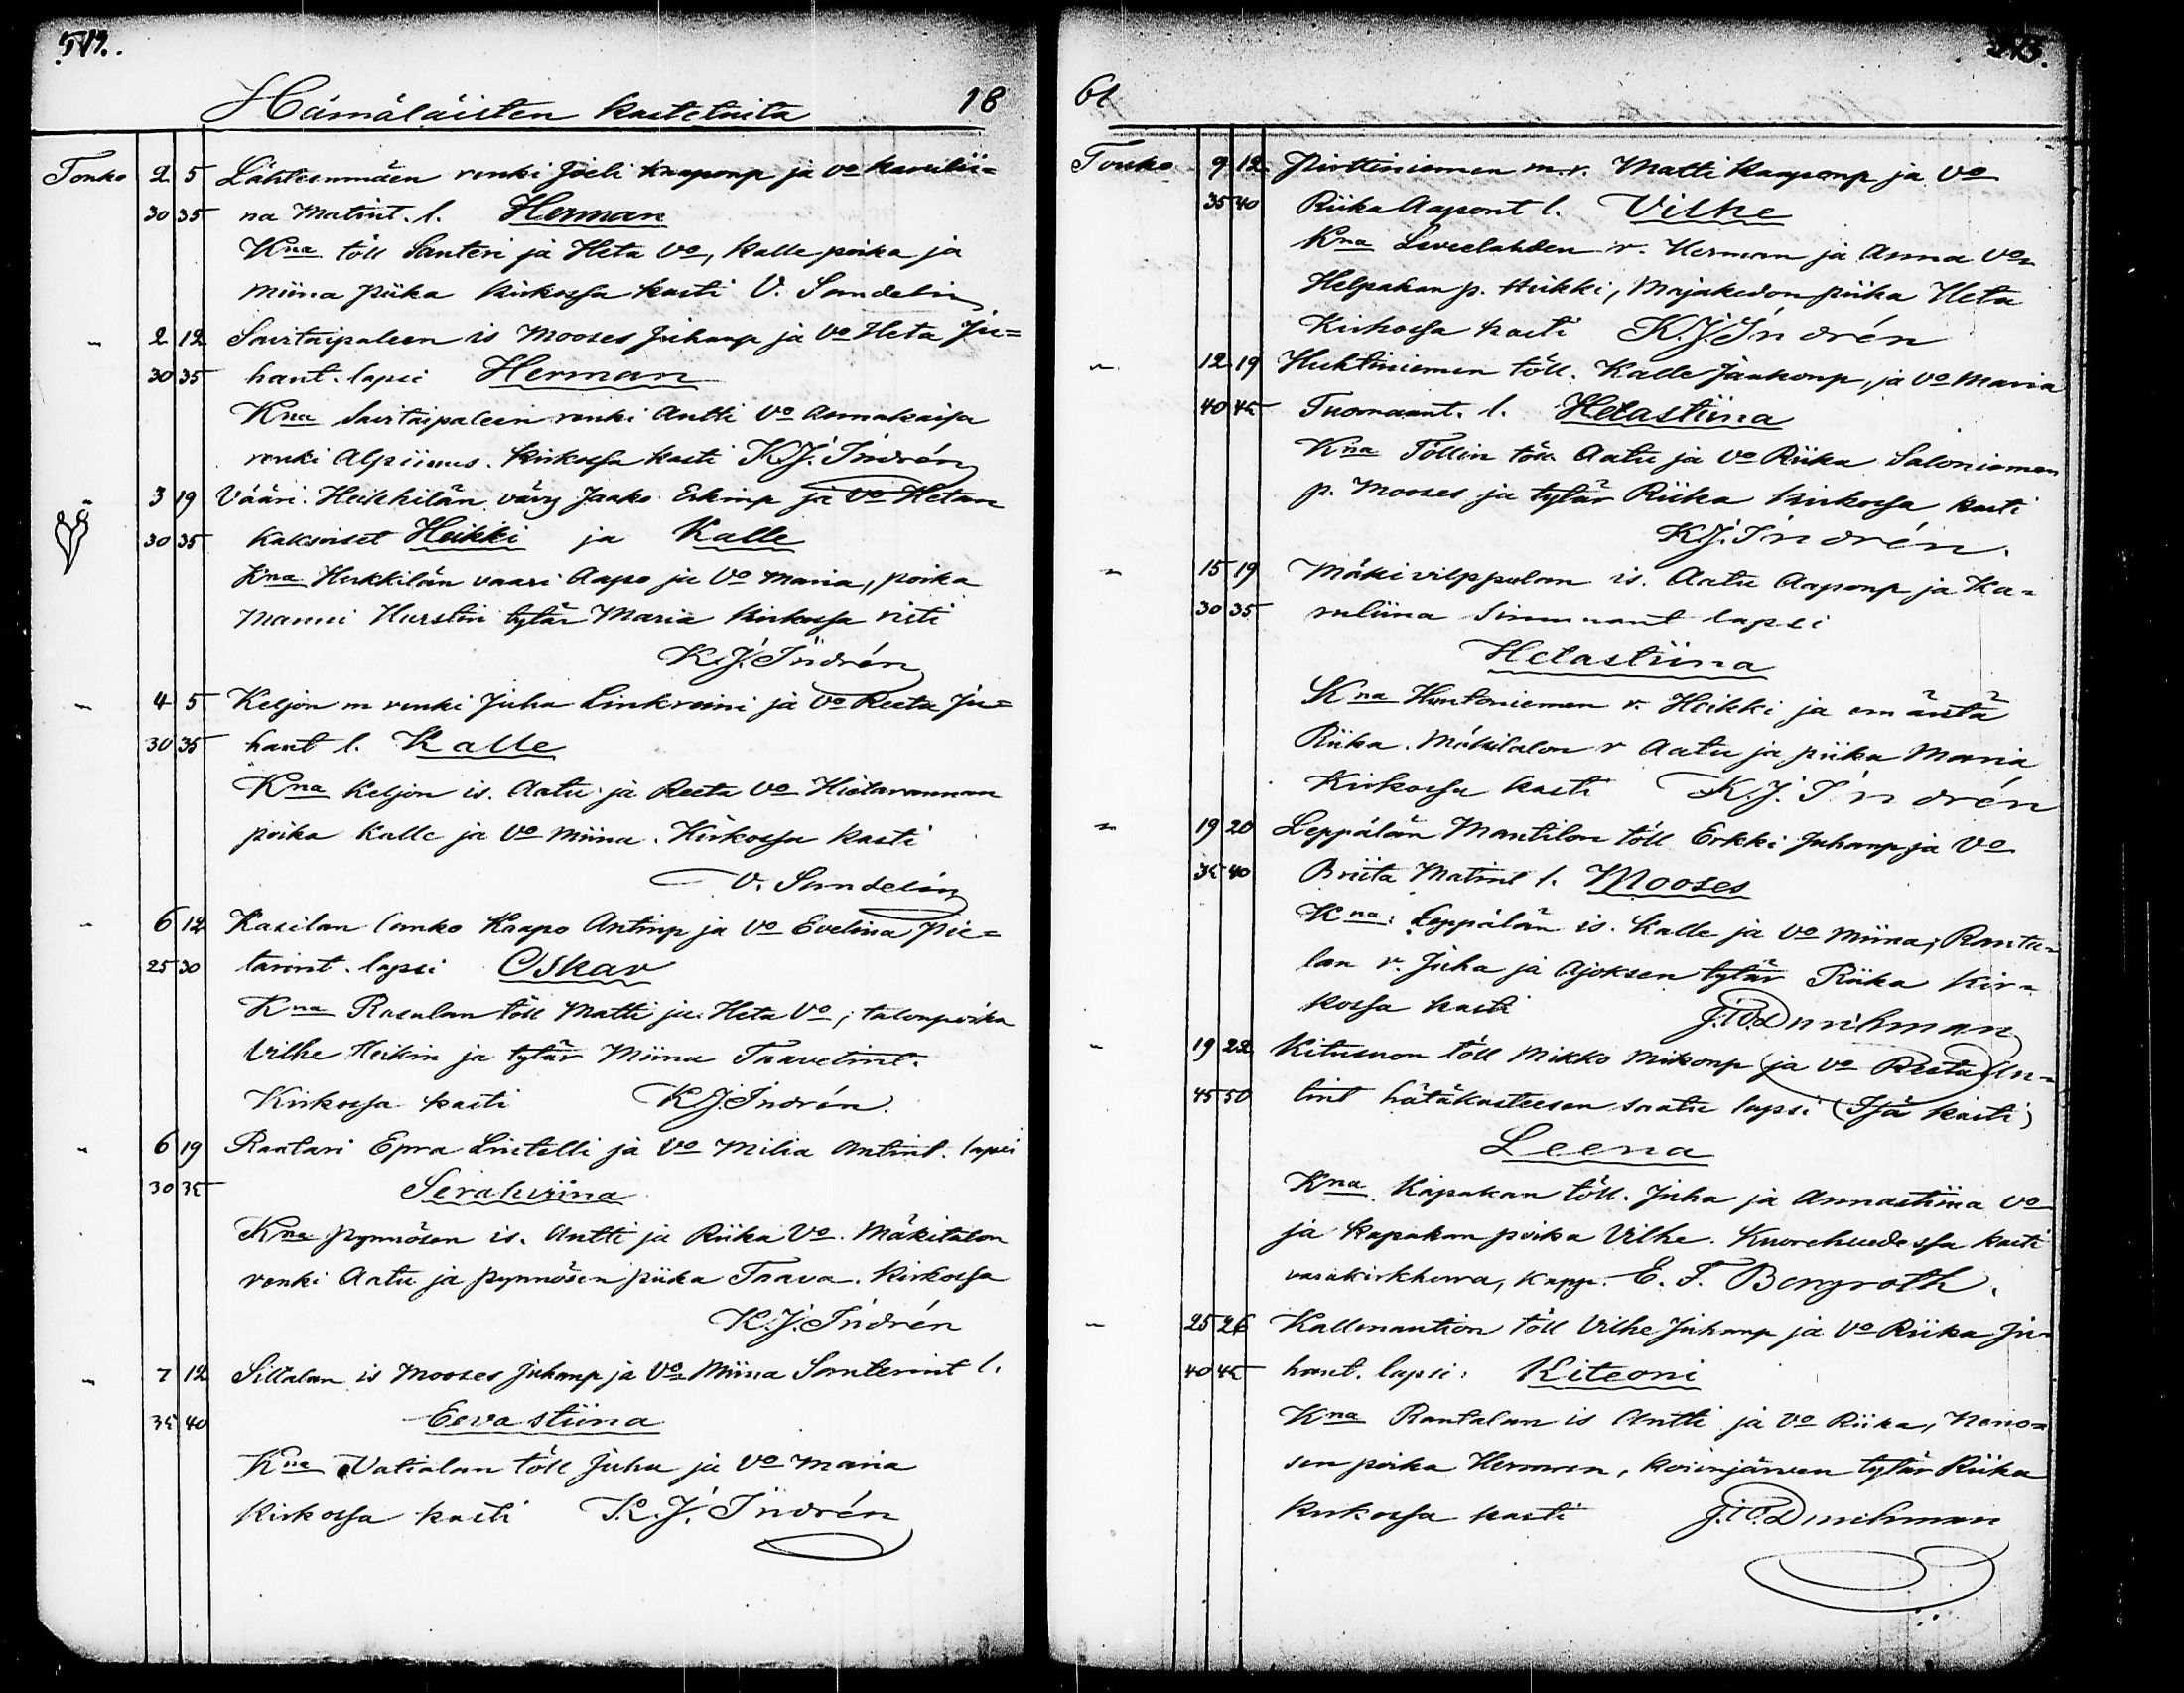 Hämäläisten kastetuita 18
Touko 2 5 Lähteenmäen renki Joeli Kaaponp ja Vo Karolii=
30 35 na Matint. l. Herman
Kna töll Santeri ja Heta Vo, Kalle poika ja
Miina piika kirkossa kasti V. Sandelin
" 2 12 Savitaipaleen is Mooses Juhanp ja Vo Heta Ju=
30 35 hant. lapsi Herman
Kna Savitaipaleen renki Antti Vo Annakaisa
renki Alpiinus. Kirkossa kasti K.J. Indrén
" 3 19 Vääri. Heikkilän vävy Jaako Erkinp ja Vo Hetan
30 35 kaksoiset Heikki ja Kalle
Kna Heikkilän vaari Aapo ja Vo Maria, poika
Manni Hurstin tytär Maria kirkossa risti
K.J. Indrén
" 4 5 Keljon m renki Juha Linkreini ja Vo Reeta Ju=
30 35 hant l. Kalle
Kna Keljon is. Aatu ja Reeta Vo Hietarannan
poika Kalle ja Vo Miina. Kirkossa kasti
V. Sandelin
" 6 12 Kasilan lanko Kaapo Antinp ja Vo Evelina Pie=
25 30 tarint. lapsi Oskar
Kna Rasulan töll Matti ja Heta Vo, talonpoika
Vilhe Heikin ja tytär Miina Taavetint.
Kirkossa kasti K.J. Indrén
" 6 19 Räätäri Epra Lintelli ja Vo Milia Antint. lapsi
30 35 Serahviina
Kna Pynnösen is. Antti ja Riika Vo. Mäkitalon
renki Aatu ja Pynnösen piika Taava. Kirkossa
K.J. Indrén
" 7 12 Siltalan is Mooses Juhanp ja Vo Miina Santerint l.
35 40 Eevastiina
Kna Vatialan töll Juha ja Vo Maria
Kirkossa kasti K.J. Indrén
61
Touko 9 12 Pirttiniemen m.r. Matti Kaaponp ja Vo
35 40 Riika Aapont l. Vilhe
Kna Leveelahden r. Herman ja Anna Vo
Helpakan p. Heikki, Majakedon piika Heta
Kirkossa kasti K.J. Indrén
" 12 19 Huhtiniemen töll. Kalle Jaakonp, ja Vo Maria
40 45 Tuomaant. l. Hetastiina
Kna Töllin töll Aatu ja Vo Riika Saloniemen
p. Mooses ja tytär Riika kirkossa kasti
K.J. Indrén.
" 15 19 Mäkivilppulan is. Aatu Aaponp ja Ka=
30 35 ruliina Simunant lapsi
Hetastiina
Kna Huntoniemen r. Heikki ja emäntä
Riika. Mäkitalon r Aatu ja piika Maria
Kirkossa kasti K.J. Indrén
" 19 20 Leppälän Mantilan töll Erkki Juhanp ja Vo
35 40 Briita Matint l. Mooses
Kna: Leppälän is. Kalle ja Vo Miina; Ranta=
lan r. Juha ja Ajoksen tytär Riika Kir=
kossa kasti J.W. Durchman
" 19 22 Kitusuon töll Mikko Mikonp ja Vo Reeta An=
45 50 tint hätäkasteesen saatu lapsi (Isä kasti)
Leena
Kna. Kapakan töll. Juha ja Annastiina Vo
ja Kapakan poika Vilhe. Kuorehuedessa kasti
varakirkherra, kapp. E. F. Bergroth.
" 25 26 Kallenaution töll Vilhe Juhanp ja Vo Riika Ju=
40 45 hant. lapsi: Kiteoni
Kna Rantalan is Antti ja Vo Riika, Nono=
sen poika Herman, Koivujärven tytär Riika
Kirkossa kasti J.W. Durchman